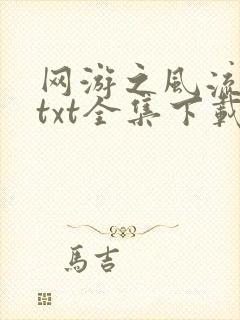 网游之风流
txt全集下载
馬吉